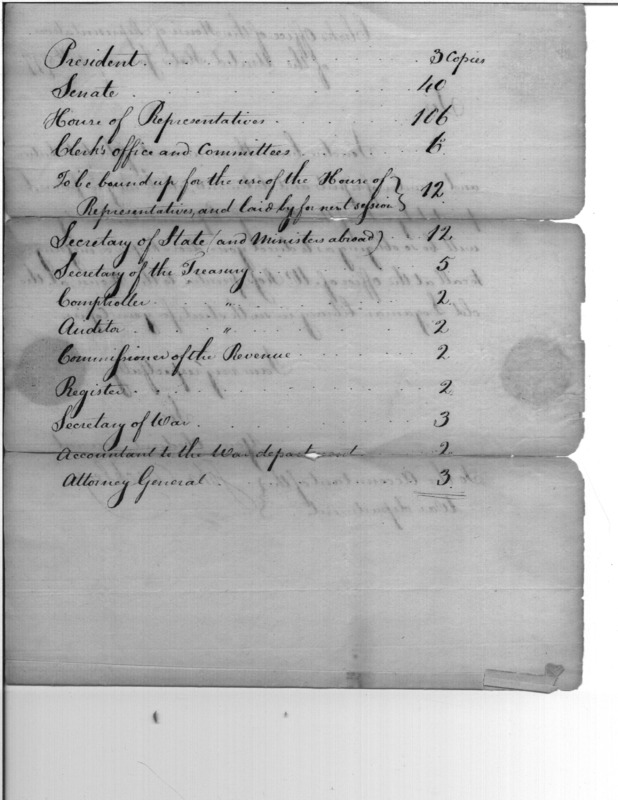 President. 3 Copies
Senate 40
House of Representatives 106
Clerk's office and Committees 6
To be bound up for the use of the House of } 12.
Representatives, and laid by for next session
Secretary of State (and Ministers abroad) 12.
Secretary of the Treasury 5
Comptroller " 2
Auditor " 2
Commissioner of the Revenue 2
Register 2
Secretary of War 3
Accountant to the War department 2
Attorney General 3